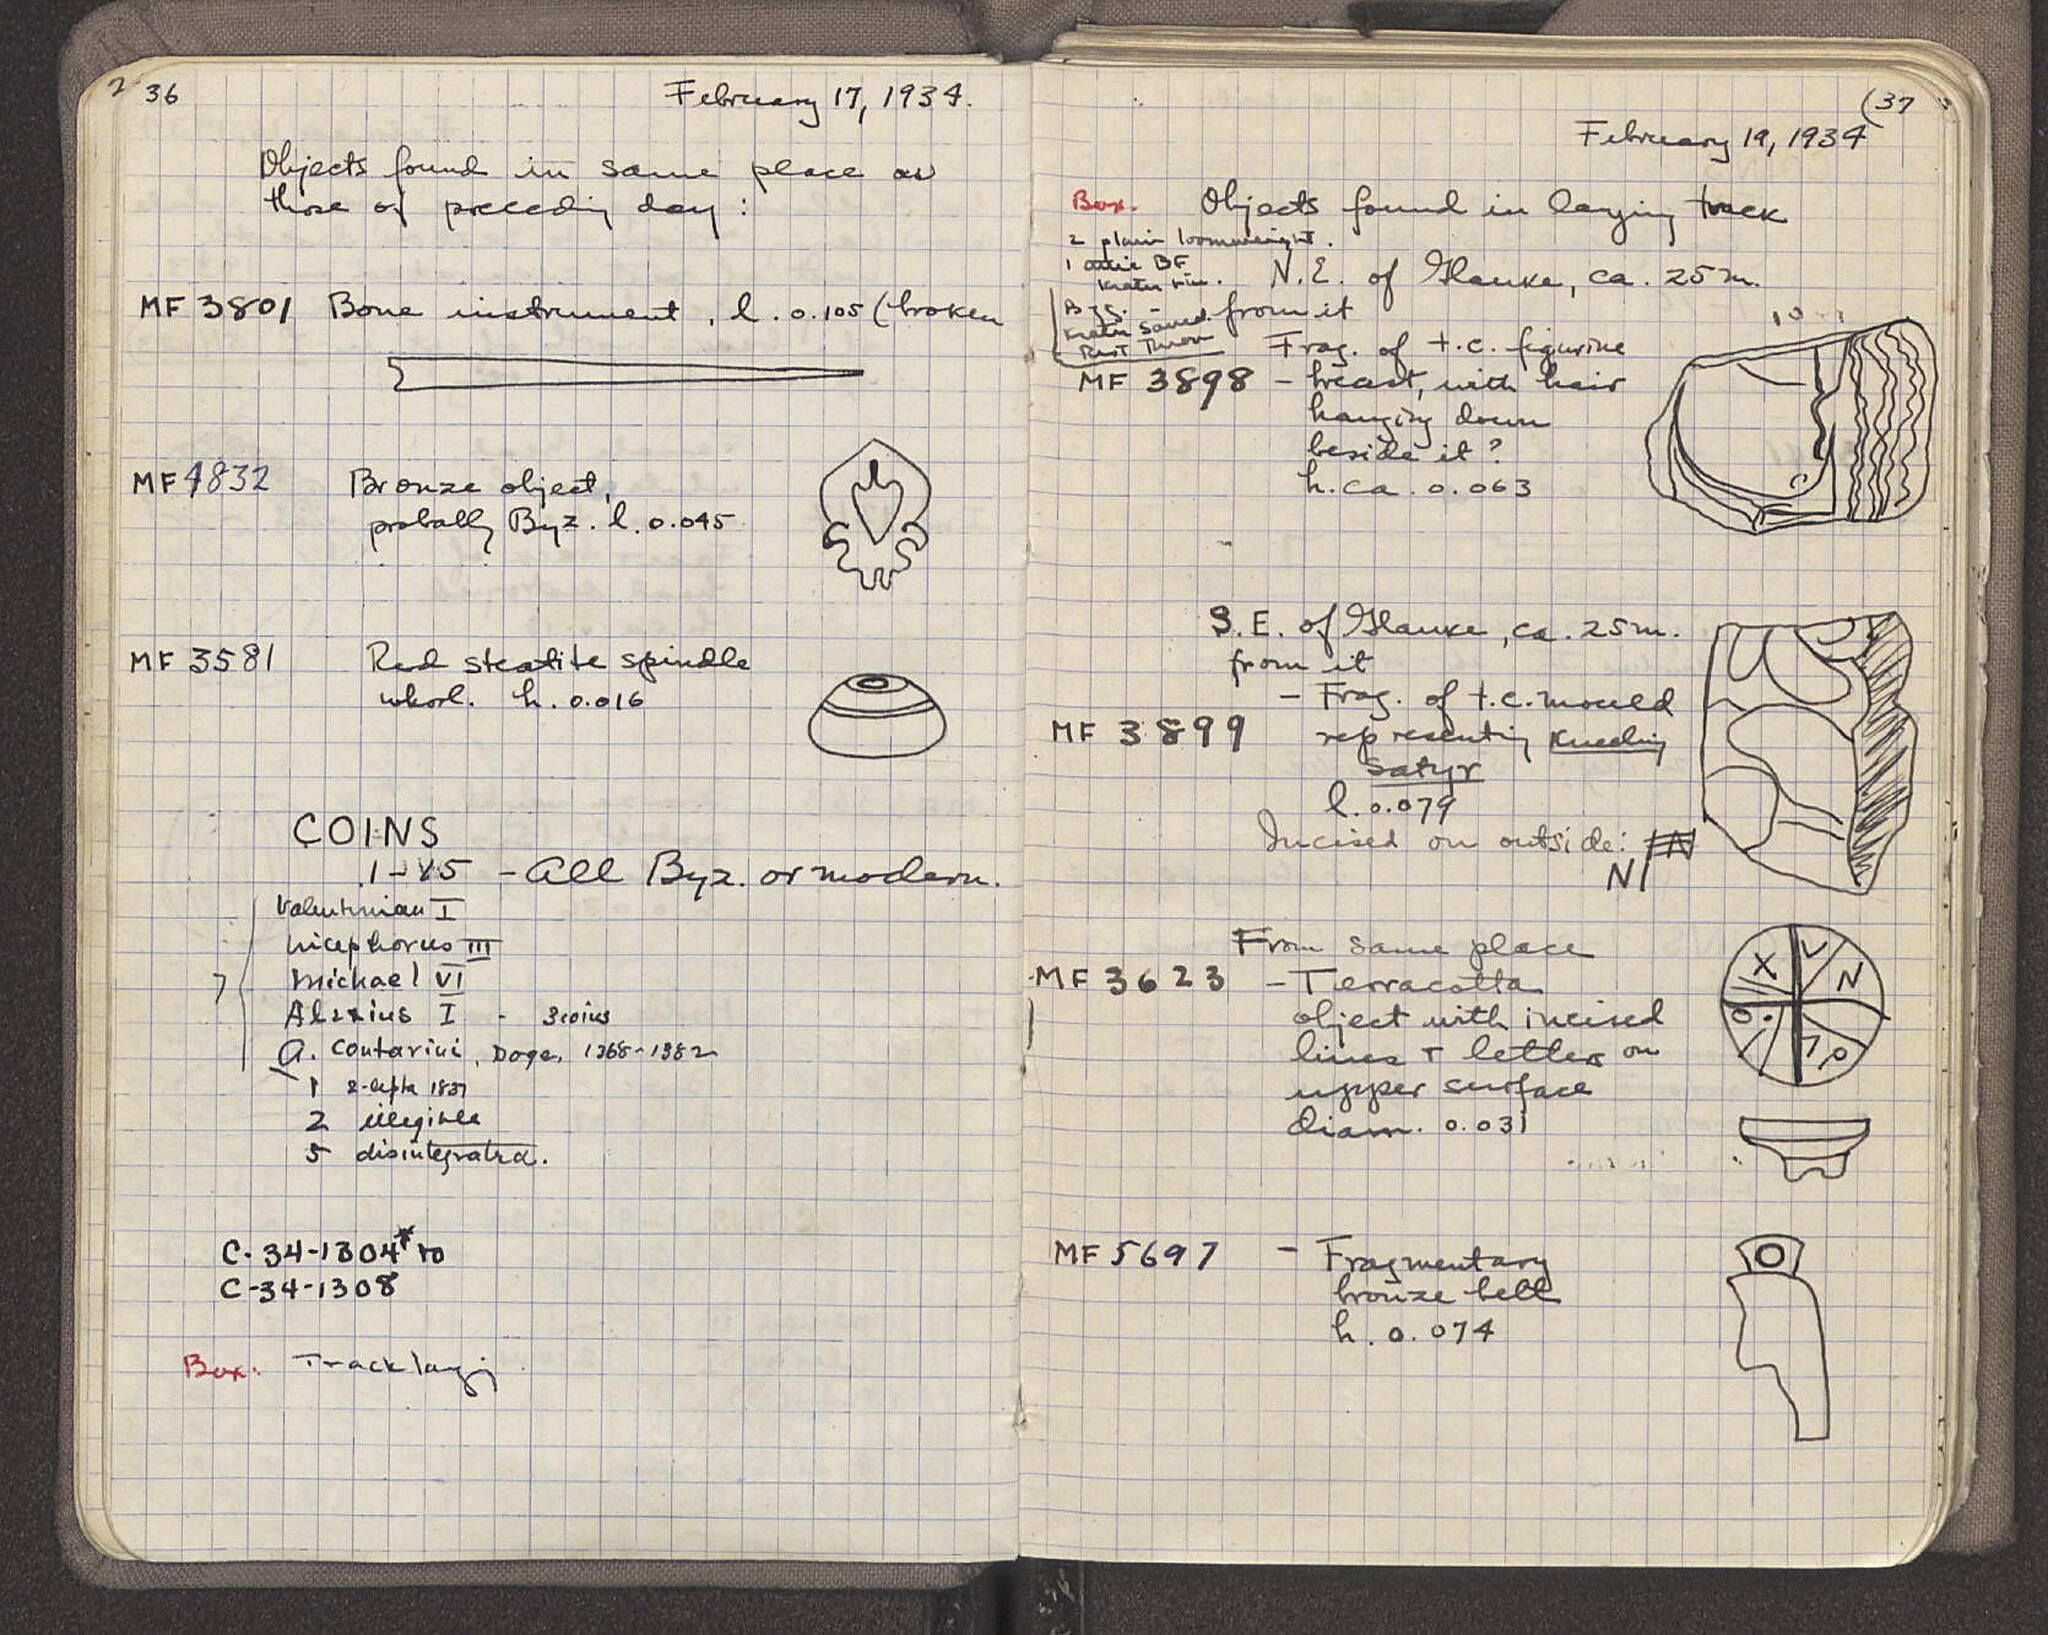 36
February 17, 1934.
Objects found in same place as
those of preceding day:
MF 3801 Bone instrument, l. 0.105 (broken
MF 4832 Bronze object,
probably Byz. l. 0.045
MF 3581 Red steatite spindle
whorl. h. 0.016
COINS
1-15 - All Byz. or modern.
Valentinian I
Nicephorus III
Michael VI
7
Alexius I - 3 coins
A. Contarini, Doge, 1368-1382
1 2-lepta 1837
2 illegible
5 disintegrated.
C-34-1304* to
C-34-1308
Box: Track laying
(37
February 19, 1934
Box. Objects found in laying track
2 plain loomweight.
1 Attic BF
krater rim.
N.E. of Glauke, ca. 25 m.
from it
Byz. -
krater saved.
Rest thrown
Frag. of t.c. figurine
MF 3898 - breast, with hair
hanging down
beside it?
h. ca. 0.063
S.E. of Glauke, ca. 25 m.
from it
- Frag. of t.c. mould
MF 3899 representing kneeling
satyr
l. 0.079
Incised on outside:
N
From same place
MF 3623 - Terracotta
object with incised
lines + letters on
upper surface
diam. 0.031
X
N
MF 5697 - Fragmentary
bronze belt
h. 0.074